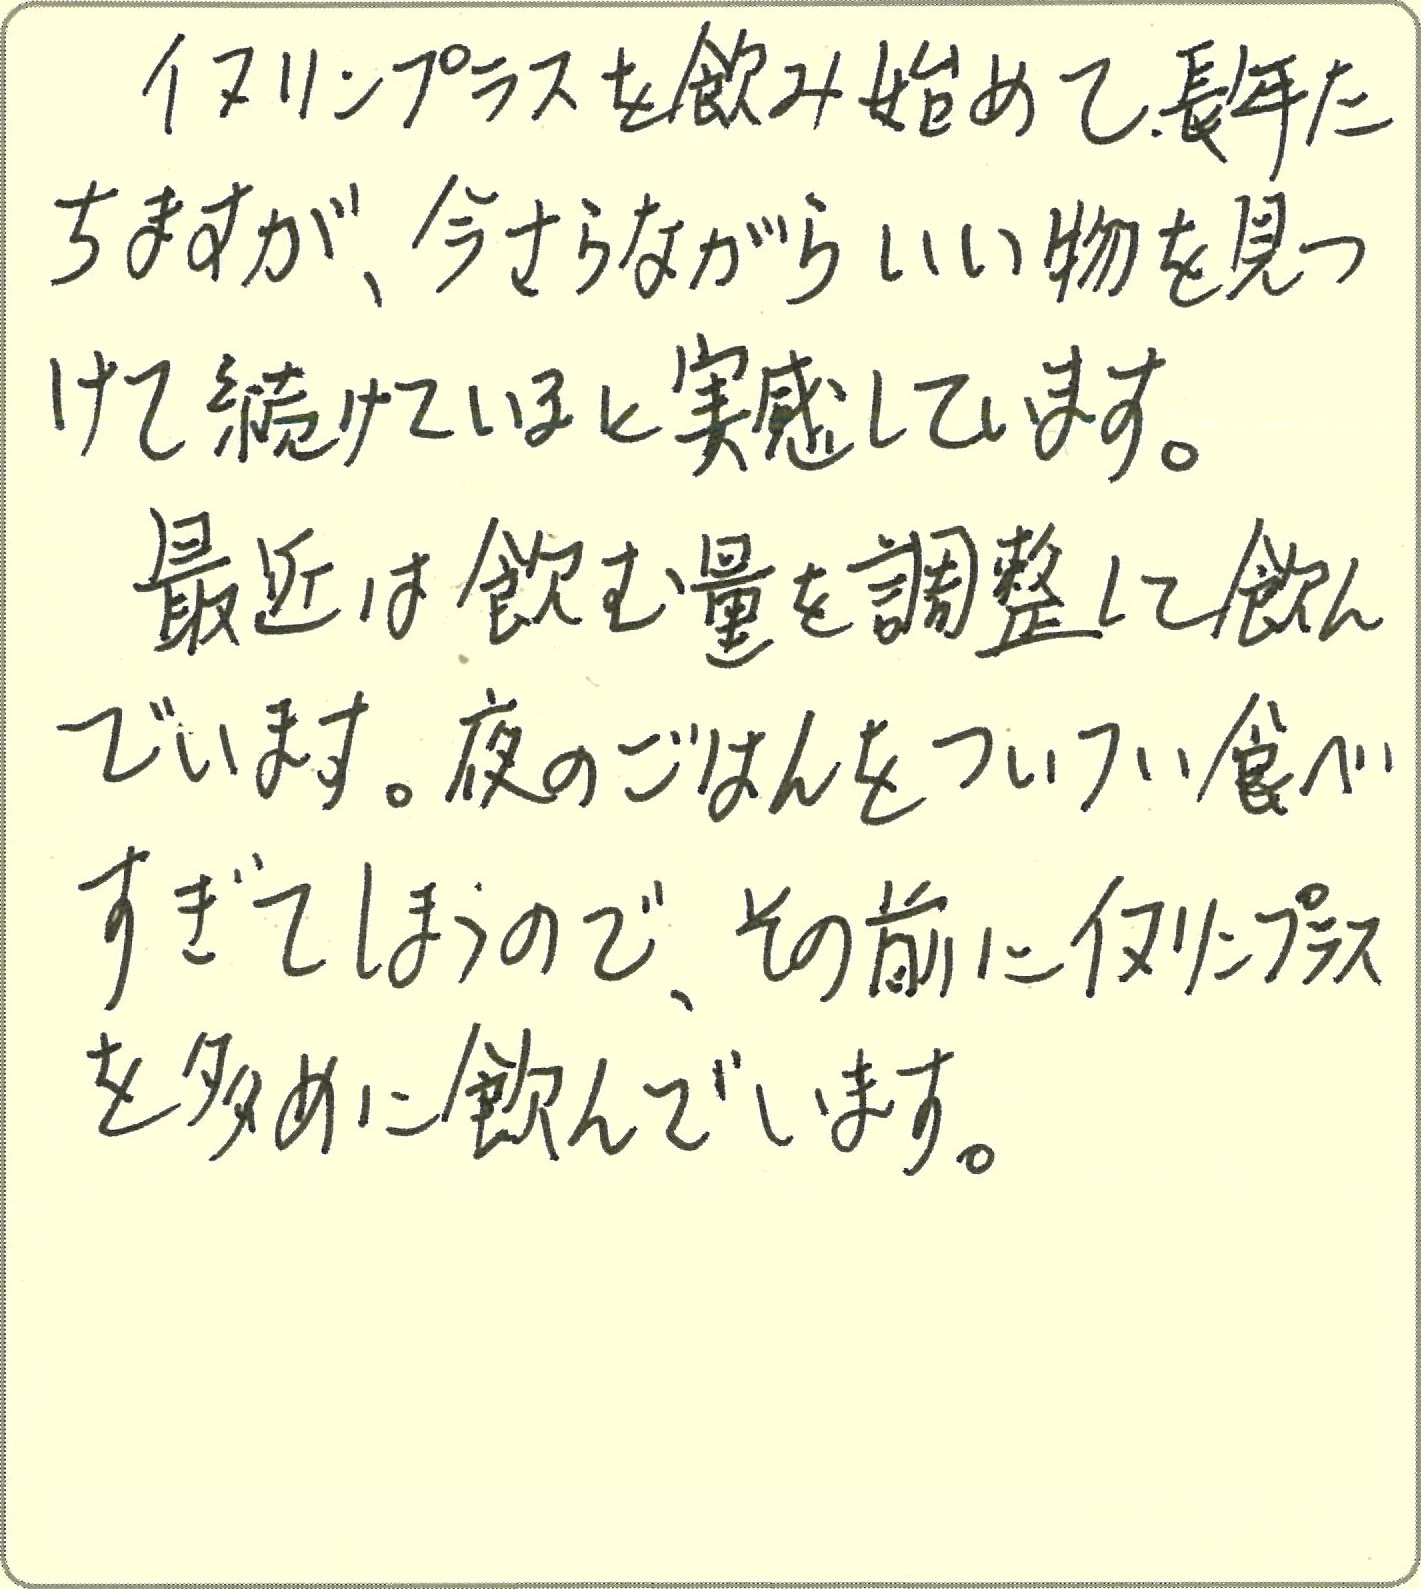 イヌリンプラスを飲み始めて、長年た
ちますが、今さらながらいい物を見つ
けて続けているなと実感しています。
最近は飲む量を調整して飲ん
でいます。夜のごはんをついつい食べ
すぎてしまうので、その前にイヌリンプラス
を多めに飲んでいます。